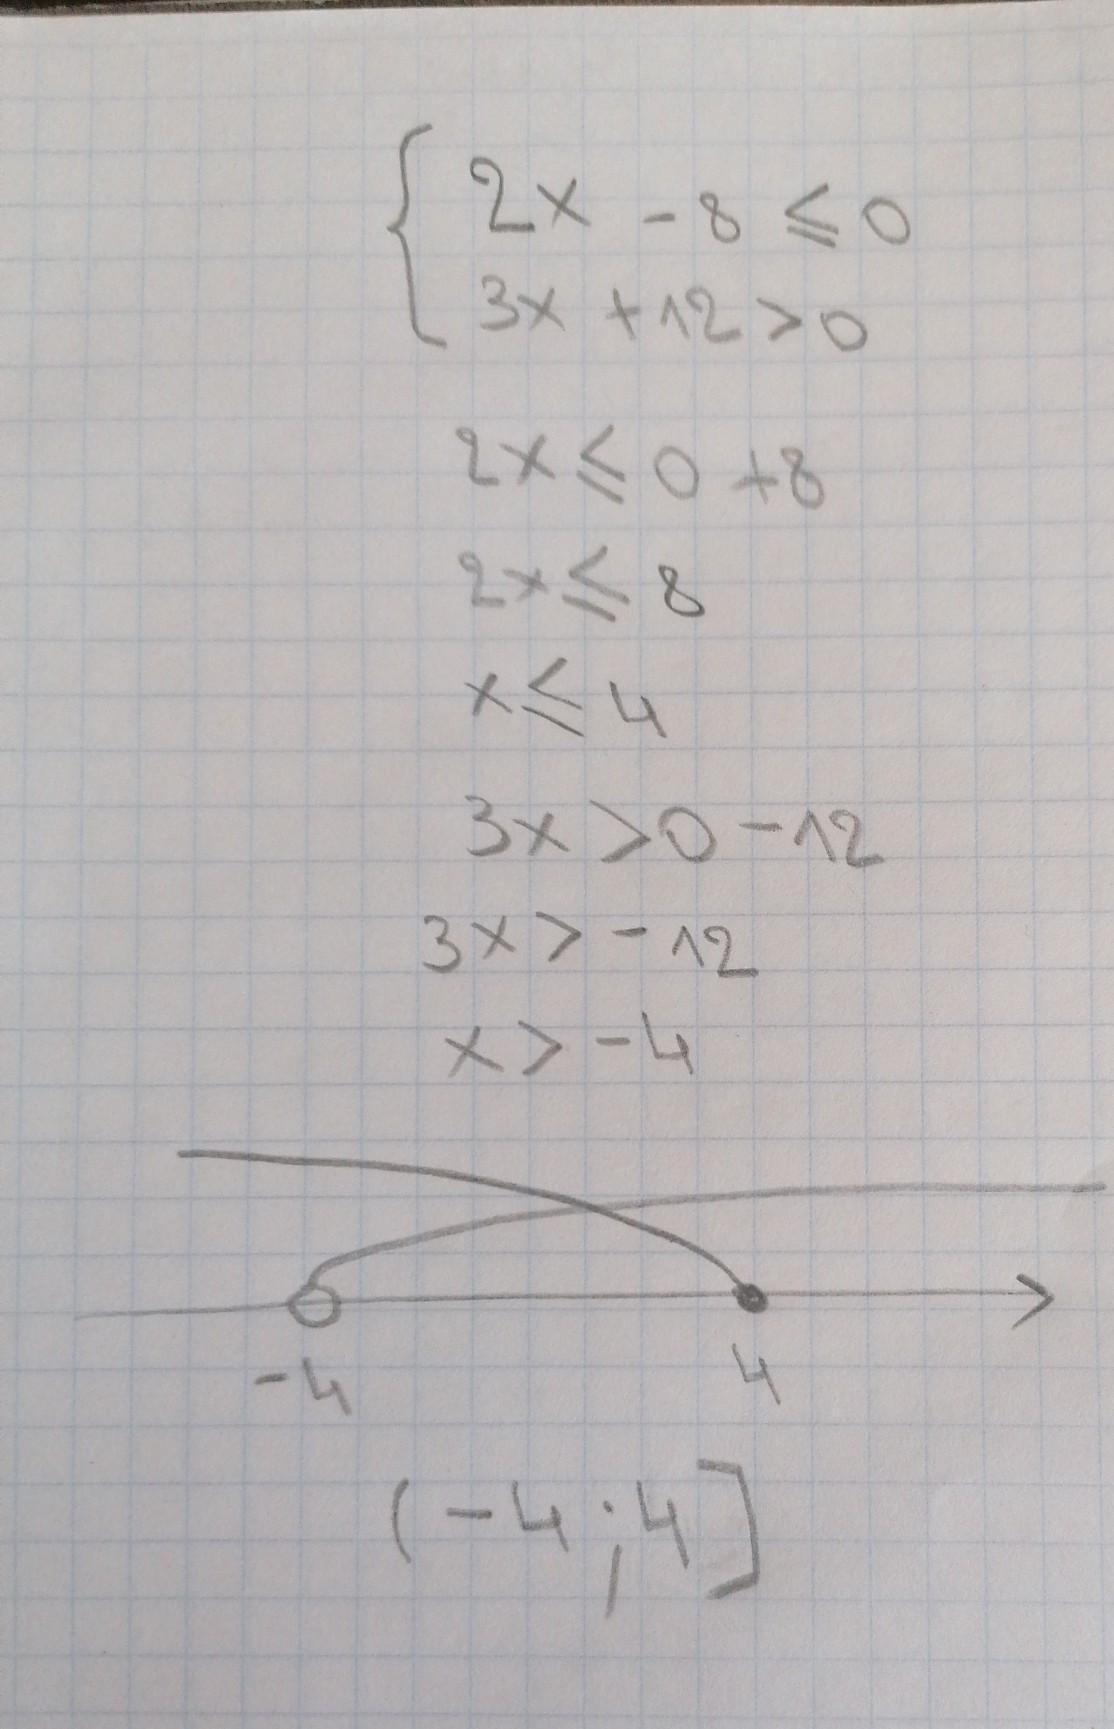 { 2x - 8 ≤ 0
3x + 12 > 0
2x ≤ 0 + 8
2x ≤ 8
x ≤ 4
3x > 0 - 12
3x > - 12
x > - 4
-4 4
(-4 ; 4]